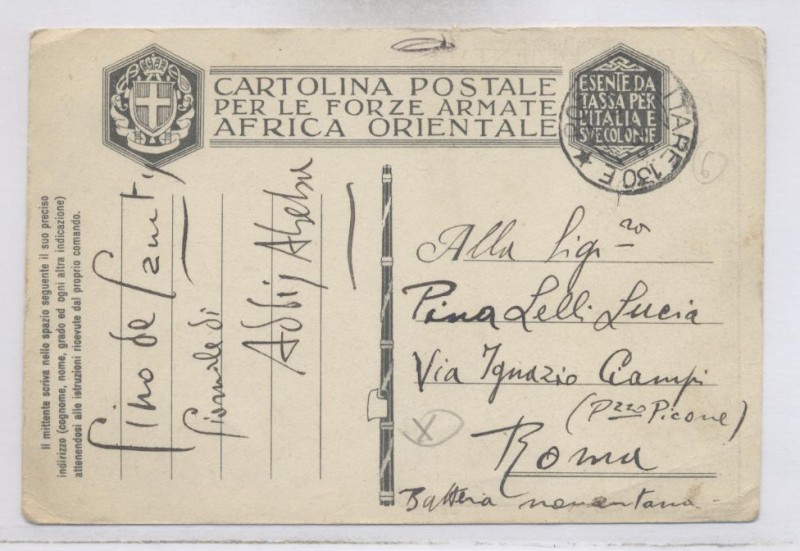 CARTOLINA POSTALE
PER LE FORZE ARMATE
AFRICA ORIENTALE
ESENTE DA
TASSA PER
L'ITALIA E
SVE COLONIE
ITARE 130 E ★
6
Il mittente scriva nello spazio seguente il suo preciso
indirizzo (cognome, nome, grado ed ogni altra indicazione)
attenendosi alle istruzioni ricevute dal proprio comando.
Gino de Sanctis
Giornale di
Addis Abeba
Alla Sig.ra
Pina Lelli Lucia
Via Ignazio Ciampi
(Pzzo Picone)
Roma
Batteria nomentana
X